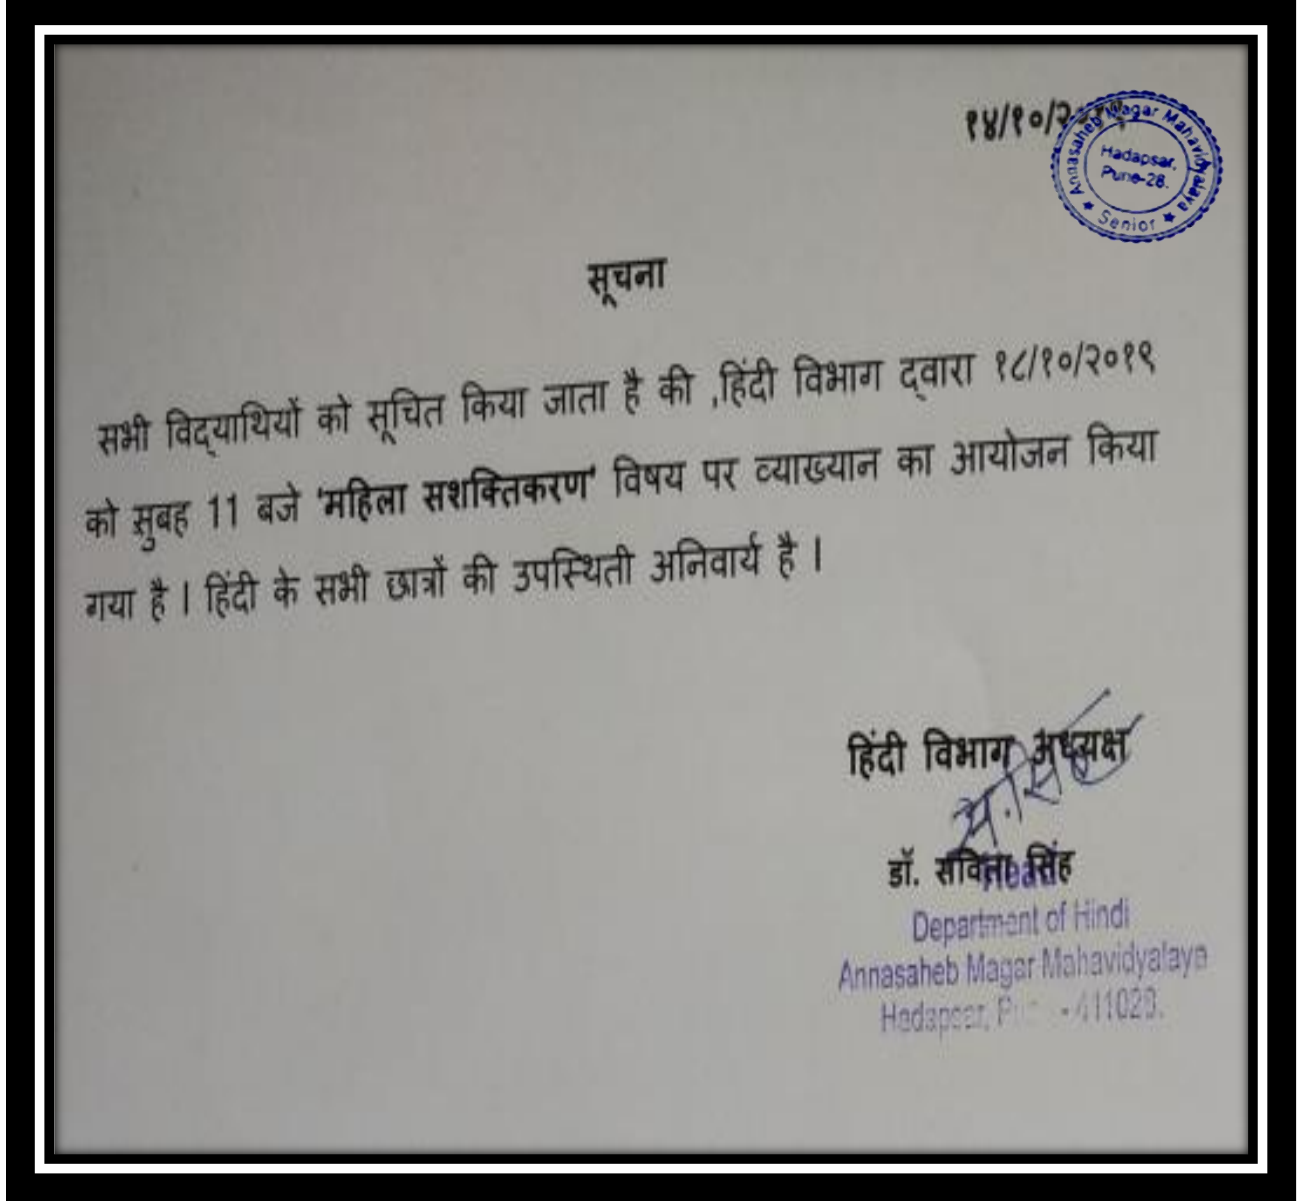 १४/१०/२०१९
Annasaheb Magar Mahavidyalaya
Hadapsar,
Pune-28.
★ Senior ★
सूचना
सभी विद्याथियों को सूचित किया जाता है की ,हिंदी विभाग द्वारा १८/१०/२०१९
को सुबह 11 बजे 'महिला सशक्तिकरण' विषय पर व्याख्यान का आयोजन किया
गया है । हिंदी के सभी छात्रों की उपस्थिती अनिवार्य है ।
हिंदी विभाग अध्यक्ष
डॉ. सविता सिंह
Head
Department of Hindi
Annasaheb Magar Mahavidyalaya
Hadapsar, - 411028.